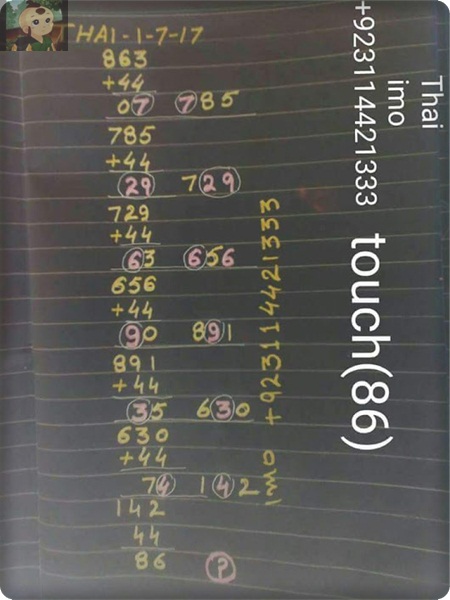 THAI-1-7-17
863
+44
07 785
785
+44
29 729
729
+44
63 656
656
+44
90 891
891
+44
35 630
630
+44
74 142
142
44
86 ?
imo +923114421333
Thai
imo
+923114421333 touch(86)